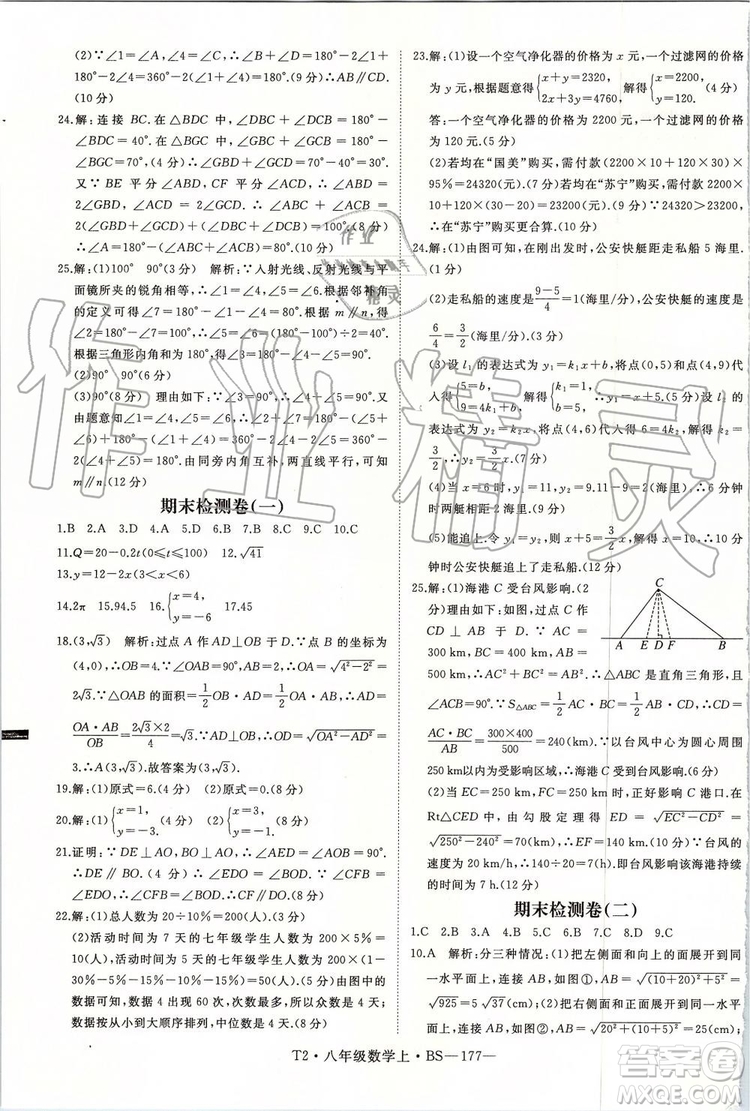 (2)∵∠1=∠A,∠2=∠D,∴∠1+∠2=∠A+∠D=
180°-∠4=360°-2(180°-∠4)=180°.∴AB∥CD.
(10分)
24.解:连接 BC.在△BDC 中,∠DBC+∠DCB=180°-
∠BDC=40°.在△BGC 中,∠GBC+∠GCB=180°-
∠BGC=70°,(4分)∴∠GBD+∠GCD=70°-40°=
30°.又∵BE 平分∠ABD,CF 平分∠ACD,∴∠ABD=
2∠GBD,∠ACD=2∠GCD.∴∠ABC+∠ACB=
2∠GBD+2∠GCD+(∠DBC+∠DCB)=100°.(8分)
∴∠A=180°-(∠ABC+∠ACB)=80°.(10分)
25.解:(1)100° 90°(3分) 解析:∵入射光线、反射光线与平
面镜所夹的锐角相等,∴∠1=∠5=50°.根据邻补角
的定义可得∠7=180°-∠1-∠5=80°.根据m∥n,得
∠2=180°-∠7=100°,
根据三角形内角和为180°,∴∠3=180°-∠4-∠5=90°.
(2)90° 90°(6分)
(3)90°(8分) 理由如下:∵∠3=90°,∴∠4+∠5=90°.又
由题意知∠2=180°-2∠4,
由同旁内角互补,两直线平行,可知
m∥n.(12分)
期末检测卷(一)
1.B 2.A 3.D 4.A 5.D 6.D 7.B 8.C 9.C 10.C
11.Q=20-0.2t(0≤t≤100) 12.√41
13.y=12-2x(3<x<6)
14.2π 15.94.5 16.{x=4, y=-6 17.45
18.(3,√3) 解析:过点 A 作 AD⊥OB 于 D.∵B 的坐标为
(4,0),∴OB=4.∵∠OAB=90°,AB=2,∴OA=√(4²-2²)=
2√3.∵△OAB 的面积=1/2 OB·AD=1/2 OA·AB,∴AD=
OA·AB/OB=2√3×2/4=√3.∵AD⊥OB,∴OD=√(OA²-AD²)=
3.∴A(3,√3).故答案为(3,√3).
19.解:(1)原式=6.(4分)(2)原式=0.(8分)
20.解:(1){x=1, y=-3.(4分) (2){x=0, y=-1.(8分)
21.证明:∵DE⊥AO,BO⊥AO,∴∠AED=∠AOB=90°,
∴DE∥BO.(4分)∴∠EDO=∠BOD.∵∠CFB=
∠EDO,∴∠CFB=∠BOD,∴CF∥DO.(8分)
22.解:(1)总人数为 20÷10%=200(人).(2分)
(2)活动时间为 7 天的七年级学生人数为 200×5%=
10(人),活动时间为 5 天的七年级学生人数为 200×(1-
30%-5%-15%-10%-15%)=50(人).(6分)
(3)活动时间为 4 天的学生人数为 60 人,由图中的
数据可知,数据4出现 60 次,次数最多,所以众数是 4 天;
数据按从小到大顺序排列,中位数为 4 天.(8分)
23.解:(1)设一个空气净化器的价格为 x 元,一个过滤网的价格
为 y 元,根据题意得{x+y=2320, 2x+3y=4760,解得{x=2200, y=120.(4分)
答:一个空气净化器的价格为 2200 元,一个过滤网的价
格为 120 元.(5分)
(2)若均在“国美”购买,需付款(2200×10+120×30)×
95%=24320(元).(7分)若均在“苏宁”购买,需付款2200×
10+120×(30-10×2)=23200(元).∵24320>23200,
∴在“苏宁”购买更合算.(10分)
24.解:(1)由图可知,在刚出发时,公安快艇距走私船 5 海里.
(1分)
(2)走私船的速度是(9-5)/4=1(海里/分),公安快艇的速度是
6/4=3/2(海里/分).(3分)
(3)设 l₁ 的表达式为 y₁=k₁x+b,将点(0,5),(4,9)代
入得{5=b, 9=4k₁+b,解得{k₁=1, b=5,∴y₁=x+5.(5分)设 l₂ 的
表达式为 y₂=k₂x,将点(4,6)代入得6=4k₂,∴k₂=
3/2,∴y₂=3/2x.(7分)
(4)当 x=6 时,y₁=11,y₂=9.11-9=2(海里),∴6 分钟
时两艇相距 2 海里.(9分)
(5)能追上.(10分)理由如下:当x+5=3/2x时,x=10,即 10 分
钟时公安快艇追上了走私船.(12分)
25.解:(1)海港 C 受台风影响.(2分)
理由如下:如图,过点 C 作
CD⊥AB 于 D.∵AC=
300 km,BC=400 km,AB=
500 km,∴AC²+BC²=
AB².∴△ABC 是直角三角形,
∠ACB=90°.∵S△ABC=1/2 AC·BC=1/2 CD·AB,∴CD=
AC·BC/AB=300×400/500=240(km).∵以台风中心为圆心周围
250km以内为受影响区域,∴海港C受台风影响.(6分)
(2)当 EC=250 km,FC=250 km 时,正好影响 C 港口.在
Rt△CED 中,由勾股定理得 ED=√(EC²-CD²)=
√(250²-240²)=70(km),∴EF=140 km.∵台风的速
度为 20 km/h,∴140÷20=7(h),即台风影响该海港持续的
时间为 7 h.(12分)
A E D F B
C
期末检测卷(二)
1.C 2.B 3.A 4.C 5.A 6.B 7.D 8.D 9.C
10.A 解析:分三种情况:(1)把左侧面和向上的面展开到同
一水平面上,连接 AB,如图①,AB=√((10+20)²+5²)=
√925=5√37(cm);(2)把右侧面和正面展开到同一水
平面上,连接 AB,如图②,AB=√(20²+(10+5)²)=25(cm).
T2·八年级数学上·BS—177—
作业精灵